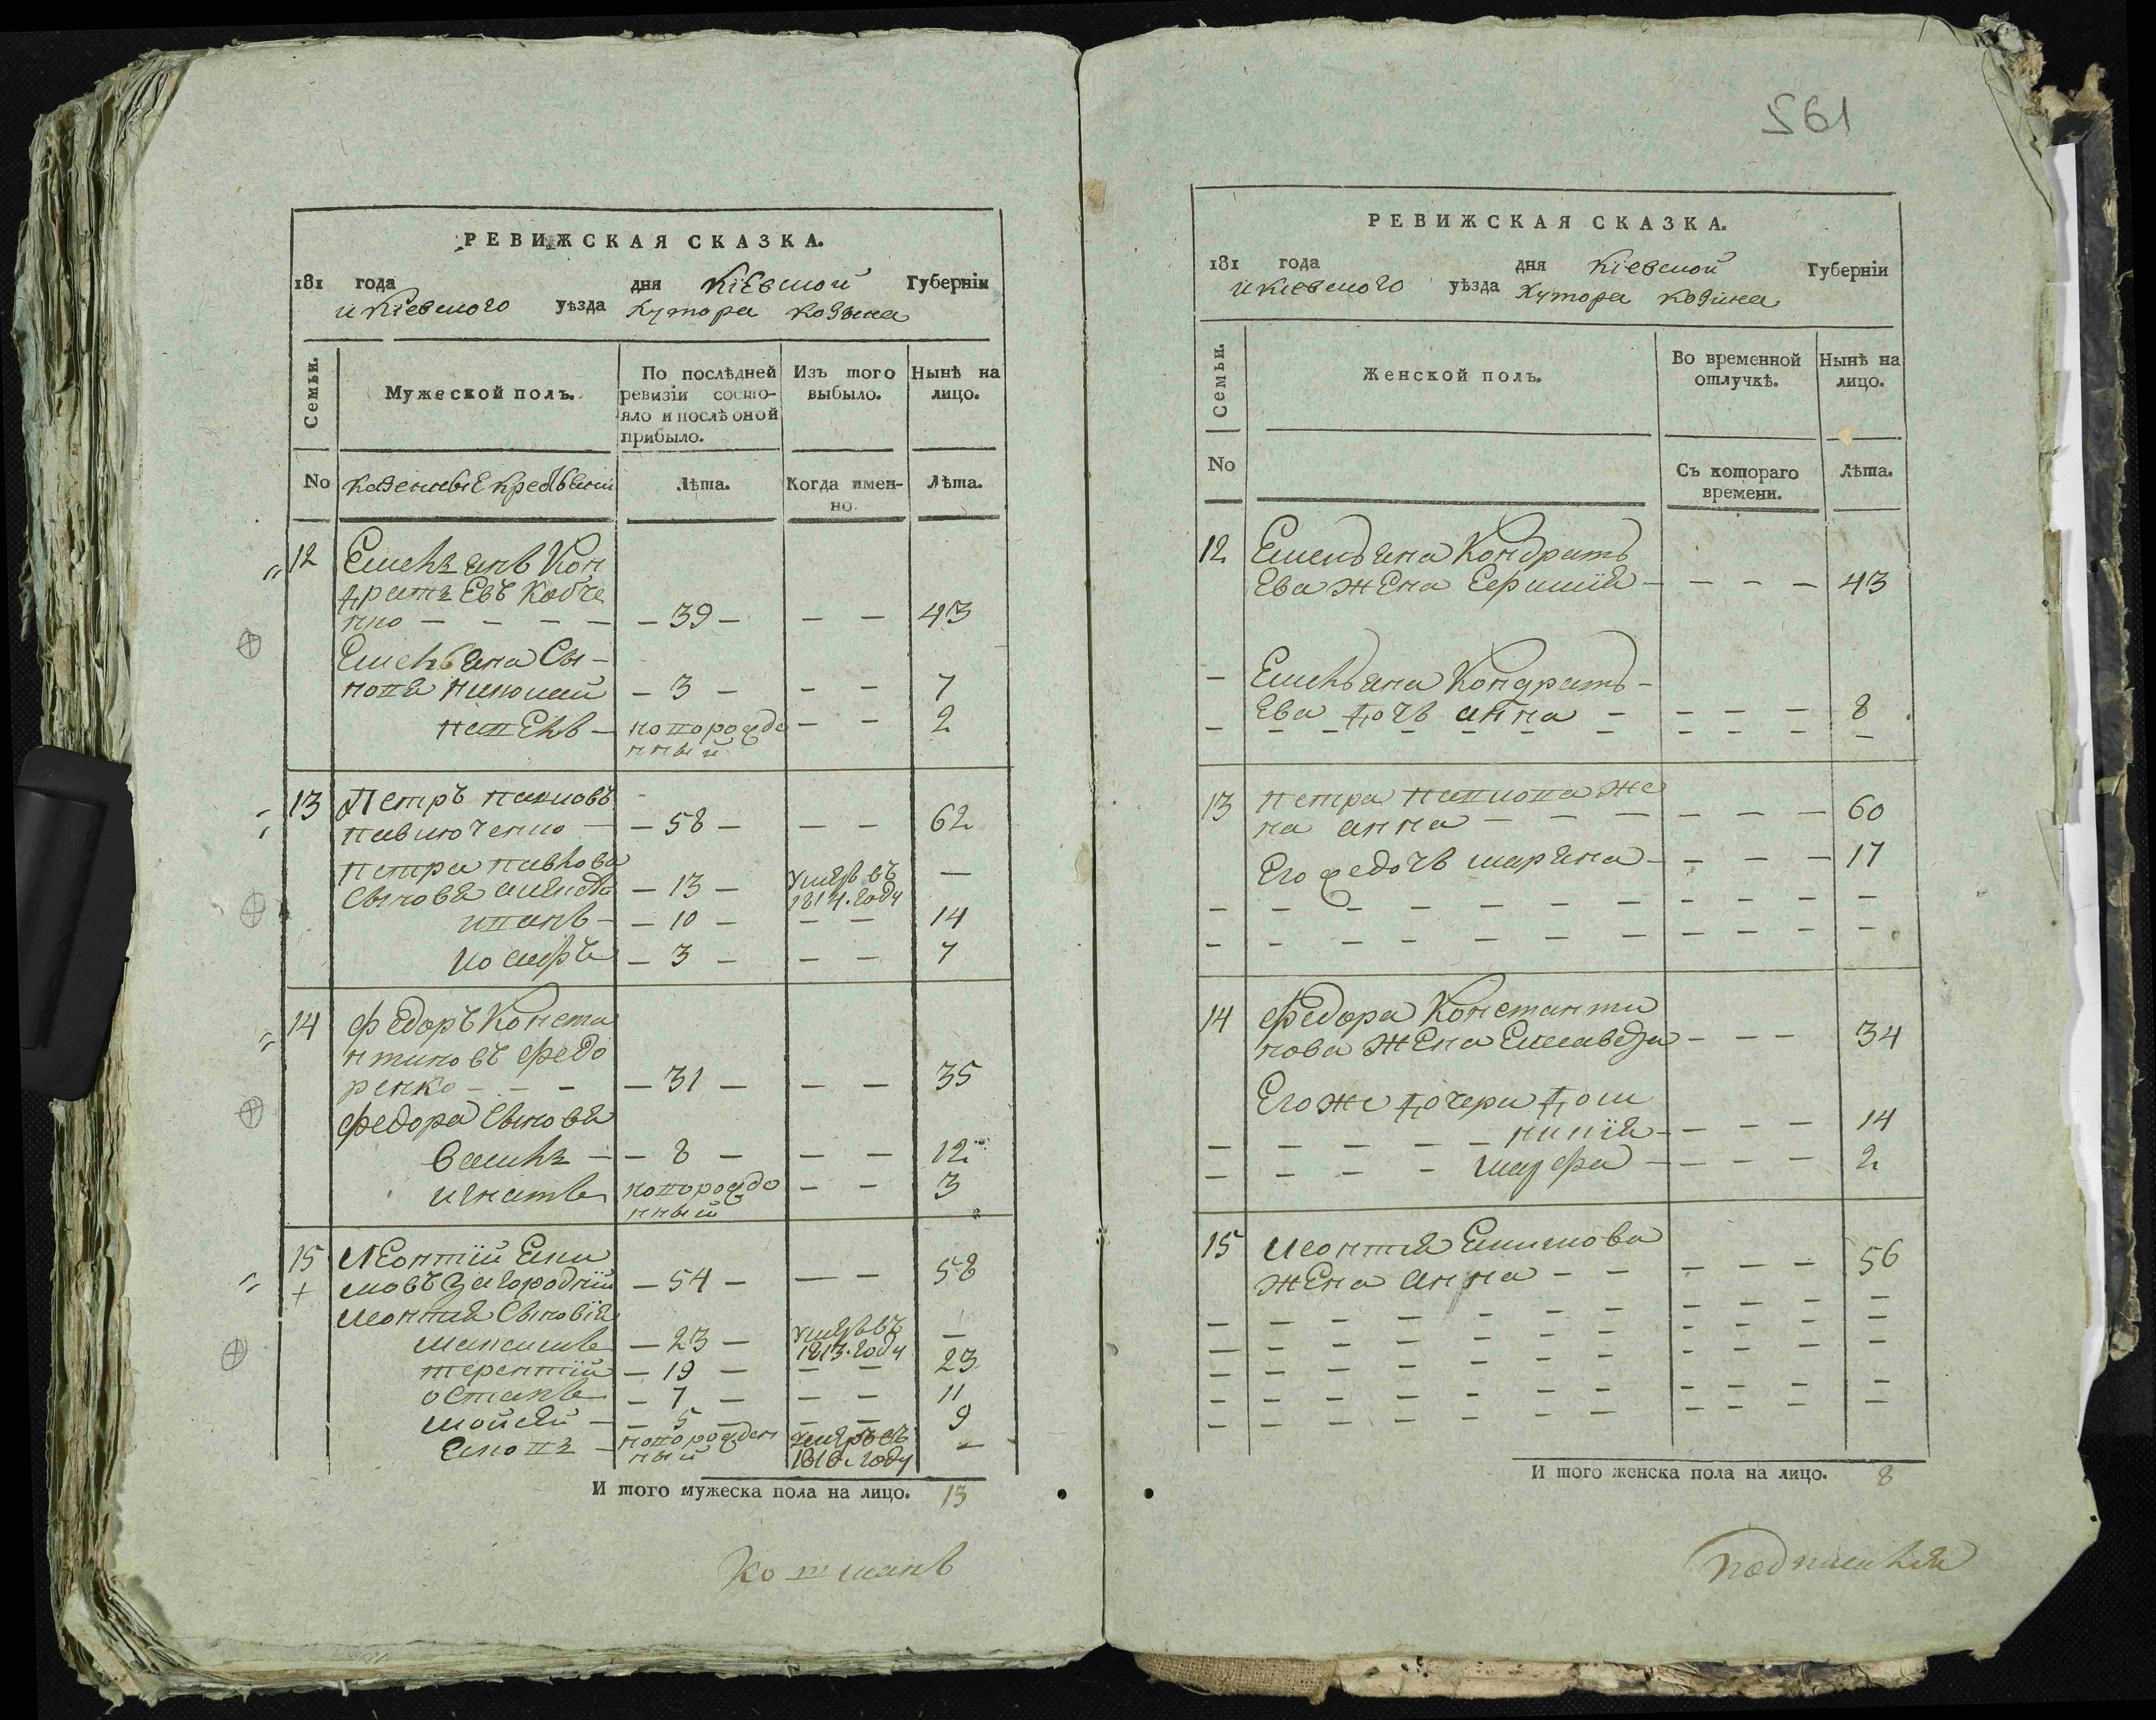 РЕВИЖСКАЯ СКАЗКА.
181 года дня Кіевской Губерніи
и Кіевского уѣзда Хутора Козина
Семьи.
Мужеской полъ.
По послѣдней ревизіи состо-
яло и послѣ оной
прибыло.
Изъ того
выбыло.
Нынѣ на
лицо.
No казенные
Лѣта.
Когда имен-
но.
Лѣта.
12 Емельянъ Кон
дратьевъ Кобче
нко — — — — 39 — — — 43
Емельяна Сы-
новя Николай — 3 — — — 7
павелъ — новорожде — — 2
нный
13 Петръ павловъ
павлюченко — 58 — — — 62
петра павлова
Сыновя — 13 — умръ въ —
1814. году
иванъ — 10 — — — 14
иосифъ — 3 — — — 7
14 федоръ Конста
нтиновъ федо
ренко — — — 31 — — — 35
федора Сыновя
Василь — 8 — — — 12
игнатъ новорожде — — 3
нный
15 Леонтій Еки
мовъ Загородній — 54 — — — 58
+
Леонтія Сыновія
максимъ — 23 — умръ въ —
1813. году
терентій — 19 — — — 23
остапъ — 7 — — — 11
мойсей — 5 — — — 9
новорожден умръ въ —
ный году
И того мужеска пола на лицо. 13
561
РЕВИЖСКАЯ СКАЗКА.
181 года дня Кіевской Губерніи
и Кіевского уѣзда Хутора Козина
Семьи.
Женской полъ.
Во временной
отлучкѣ.
Нынѣ на
лицо.
No
Съ котораго
времени.
Лѣта.
12 Емельяна Кондрать
Ева жена — — — — 43
— Емельяна Кондрать-
Ева дочь анна — — — — 8
13 петра павлова же
на анна — — — — — — 60
Его же дочь марина — — — — 17
14 Федора Константи
нова жена Елисавета — — — 34
Его же дочери дом
никія — — — — 14
марфа — — — — 2
15 Леонтія Екимова
жена анна — — — — — — 56
И того женска пола на лицо. 8